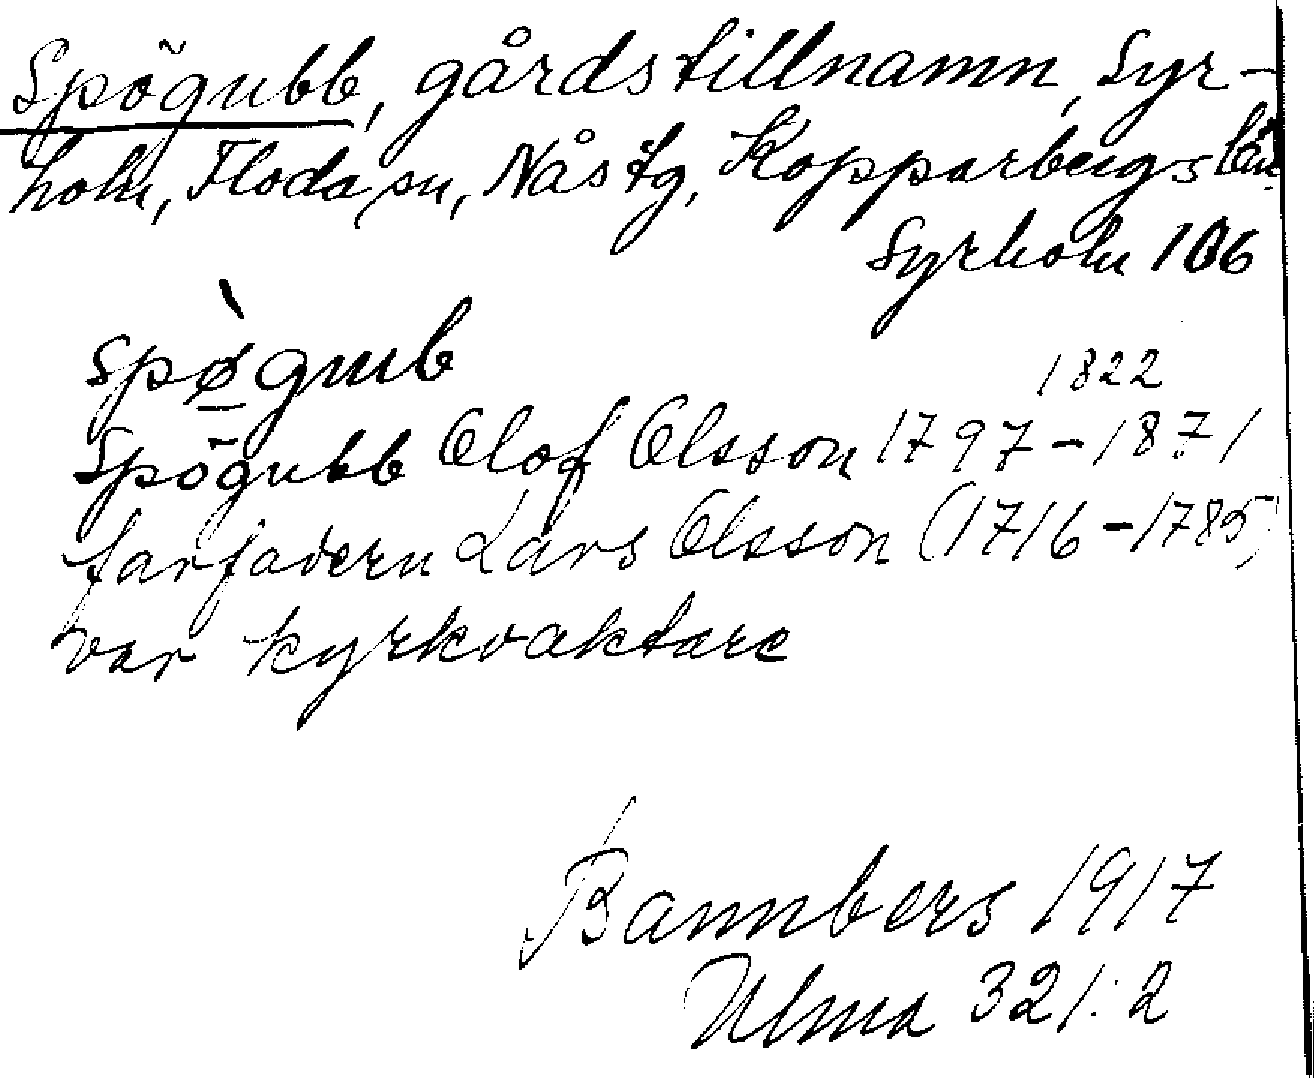 Spögubb, gårdstillnamn, Syr-
holm, Floda sn, Nås tg, Kopparbergs län
Syrholm 106
spø̀gub
1822
Spögubb Olof Olsson 1797-1871
farfadern Lars Olsson (1716-1785)
var kyrkvaktare
Bannbers 1917
Ulma 321:2